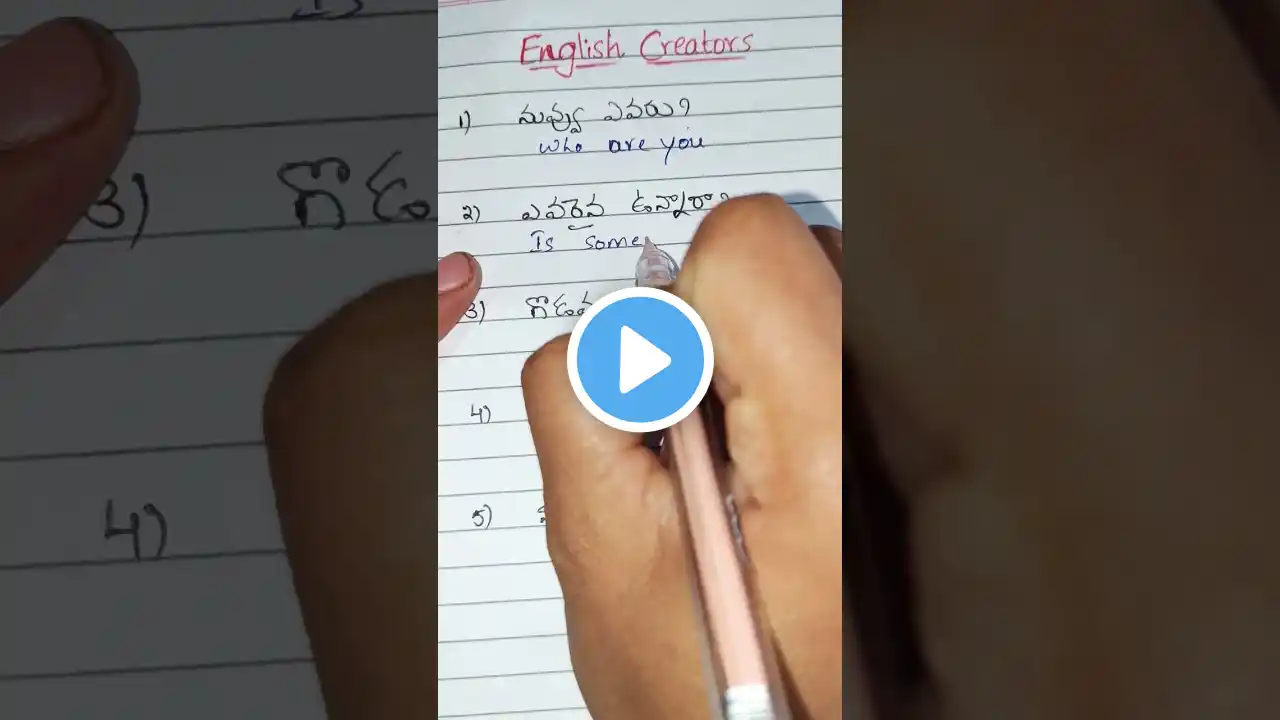 English Creators
1) నువ్వు ఎవరు?
who are you
2) ఎవరైన ఉన్నారా?
Is some
3) గొడవ
4)
5)